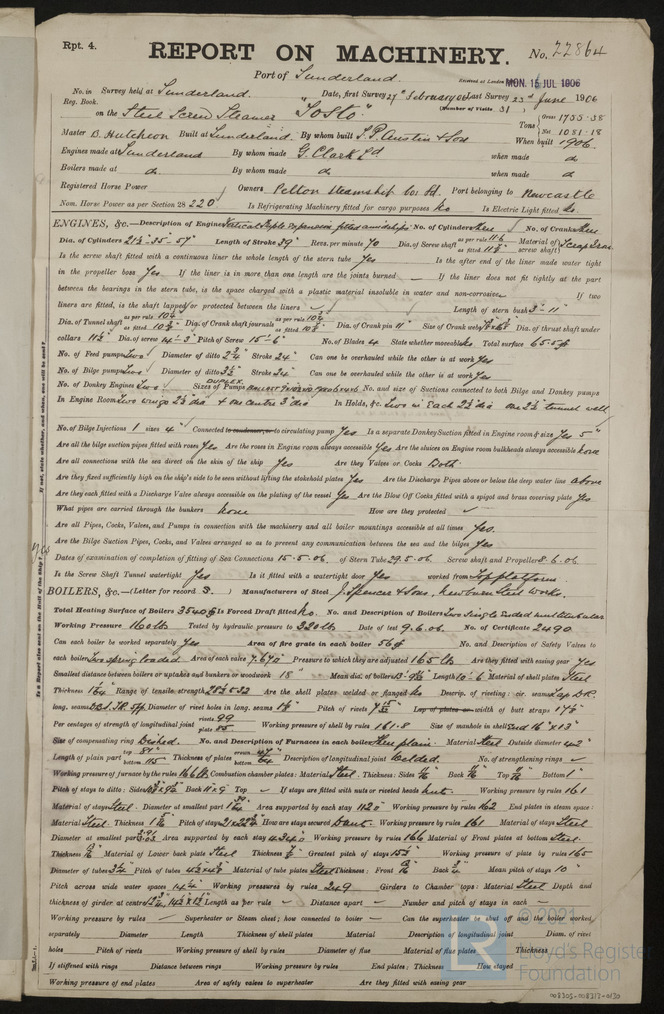 Rpt. 4.
REPORT ON MACHINERY. No. 22864
Port of Sunderland.
Received at London MON. 16 JUL 1906
No. in Survey held at Sunderland. Date, first Survey 27th February 06 Last Survey 23rd June 1906
Reg. Book. (Number of Visits 31)
on the Steel Screw Steamer "Tosto" Tons Gross 1755.38 Net 1081.18
Master B. Hutcheon Built at Sunderland By whom built S.P. Austin & Son When built 1906.
Engines made at Sunderland By whom made G. Clark Ld when made do
Boilers made at do. By whom made do when made do
Registered Horse Power Owners Pelton Steamship Co. Ld. Port belonging to Newcastle
Nom. Horse Power as per Section 28 220 Is Refrigerating Machinery fitted for cargo purposes No Is Electric Light fitted No.
ENGINES, &c.—Description of Engines Vertical Triple expansion fitted amidships No. of Cylinders three No. of Cranks three
Dia. of Cylinders 21½"-35"-57" Length of Stroke 39" Revs. per minute 70 Dia. of Screw shaft as per rule 11.6 as fitted Material of screw shaft Scrap Iron
Is the screw shaft fitted with a continuous liner the whole length of the stern tube Yes Is the after end of the liner made water tight
in the propeller boss Yes. If the liner is in more than one length are the joints burned — If the liner does not fit tightly at the part
between the bearings in the stern tube, is the space charged with a plastic material insoluble in water and non-corrosive — If two
liners are fitted, is the shaft lapped or protected between the liners ✓ Length of stern bush 3'-11"
Dia. of Tunnel shaft as per rule as fitted Dia. of Crank shaft journals as per rule as fitted Dia. of Crank pin 11" Size of Crank webs Dia. of thrust shaft under
collars 11½" Dia. of screw 14'-3" Pitch of Screw 15'-6" No. of Blades 4 State whether moveable No Total surface 65.5 ft
No. of Feed pumps Two Diameter of ditto 2¾" Stroke 24" Can one be overhauled while the other is at work Yes
No. of Bilge pumps Two Diameter of ditto 3½" Stroke 24" Can one be overhauled while the other is at work Yes
No. of Donkey Engines Two Sizes of Pumps DUPLEX No. and size of Suctions connected to both Bilge and Donkey pumps
In Engine Room Two wings 2½" dia & one centre 3" dia In Holds, &c. Two in each 2½" dia one 2½" tunnel well
No. of Bilge Injections 1 sizes 4" Connected to condenser, or to circulating pump Yes Is a separate Donkey Suction fitted in Engine room & size Yes 5"
Are all the bilge suction pipes fitted with roses Yes Are the roses in Engine room always accessible Yes Are the sluices on Engine room bulkheads always accessible None
Are all connections with the sea direct on the skin of the ship Yes Are they Valves or Cocks Both
Are they fixed sufficiently high on the ship's side to be seen without lifting the stokehold plates Yes Are the Discharge Pipes above or below the deep water line above
Are they each fitted with a Discharge Valve always accessible on the plating of the vessel Yes Are the Blow Off Cocks fitted with a spigot and brass covering plate Yes
What pipes are carried through the bunkers None How are they protected ✓
Are all Pipes, Cocks, Valves, and Pumps in connection with the machinery and all boiler mountings accessible at all times Yes.
Are the Bilge Suction Pipes, Cocks, and Valves arranged so as to prevent any communication between the sea and the bilges Yes
Dates of examination of completion of fitting of Sea Connections 15.5.06. of Stern Tube 29.5.06. Screw shaft and Propeller 8.6.06
Is the Screw Shaft Tunnel watertight Yes Is it fitted with a watertight door Yes worked from Top platform.
BOILERS, &c.—(Letter for record S) Manufacturers of Steel J. Spencer & Sons, Newburn Steel Works.
Total Heating Surface of Boilers 3540 ft Is Forced Draft fitted No. No. and Description of Boilers Two Single ended multitubular
Working Pressure 160 lbs Tested by hydraulic pressure to 320 lbs Date of test 9.6.06 No. of Certificate 2490
Can each boiler be worked separately Yes Area of fire grate in each boiler 56 ft No. and Description of Safety Valves to
each boiler Two spring loaded. Area of each valve 7.67 Pressure to which they are adjusted 165 lbs Are they fitted with easing gear Yes
Smallest distance between boilers or uptakes and bunkers or woodwork 18" Mean dia. of boilers Length 10'-6 Material of shell plates Steel
Thickness Range of tensile strength 28½-32 Are the shell plates welded or flanged No Descrip. of riveting: cir. seams Lap D.R.
long. seams Diameter of rivet holes in long. seams Pitch of rivets Lap of plates or width of butt straps
Per centages of strength of longitudinal joint rivets 99 plate 85 Working pressure of shell by rules 161.8 Size of manhole in shell end 16" x 13"
Size of compensating ring Dished. No. and Description of Furnaces in each boiler Three plain. Material Steel Outside diameter 42"
Length of plain part top bottom Thickness of plates crown bottom Description of longitudinal joint Welded. No. of strengthening rings ✓
Working pressure of furnace by the rules 166 lb Combustion chamber plates: Material Steel. Thickness: Sides Back Top Bottom 1"
Pitch of stays to ditto: Sides Back 11 x 9" Top ✓ If stays are fitted with nuts or riveted heads nut. Working pressure by rules 161
Material of stays Steel. Diameter at smallest part Area supported by each stay 112 Working pressure by rules 162 End plates in steam space:
Material Steel. Thickness Pitch of stays How are stays secured D.nut. Working pressure by rules 161 Material of stays Steel
Diameter at smallest part Area supported by each stay Working pressure by rules 166 Material of Front plates at bottom Steel.
Thickness Material of Lower back plate Steel Thickness Greatest pitch of stays Working pressure of plate by rules 165
Diameter of tubes 3¼ Pitch of tubes Material of tube plates Steel Thickness: Front Back Mean pitch of stays 10"
Pitch across wide water spaces 14¼" Working pressures by rules 249 Girders to Chamber tops: Material Steel Depth and
thickness of girder at centre Length as per rule ✓ Distance apart ✓ Number and pitch of stays in each —
Working pressure by rules ✓ Superheater or Steam chest; how connected to boiler — Can the superheater be shut off and the boiler worked
separately Diameter Length Thickness of shell plates Material Description of longitudinal joint Diam. of rivet
holes Pitch of rivets Working pressure of shell by rules Diameter of flue Material of flue plates Thickness
If stiffened with rings Distance between rings Working pressure by rules End plates; Thickness How stayed
Working pressure of end plates Area of safety valves to superheater Are they fitted with easing gear
Is a Report also sent on the Hull of the Ship? Yes
If not, state whether, and when, one will be sent?
© 2021
LR
Lloyd's Register
Foundation
008305-008317-0130